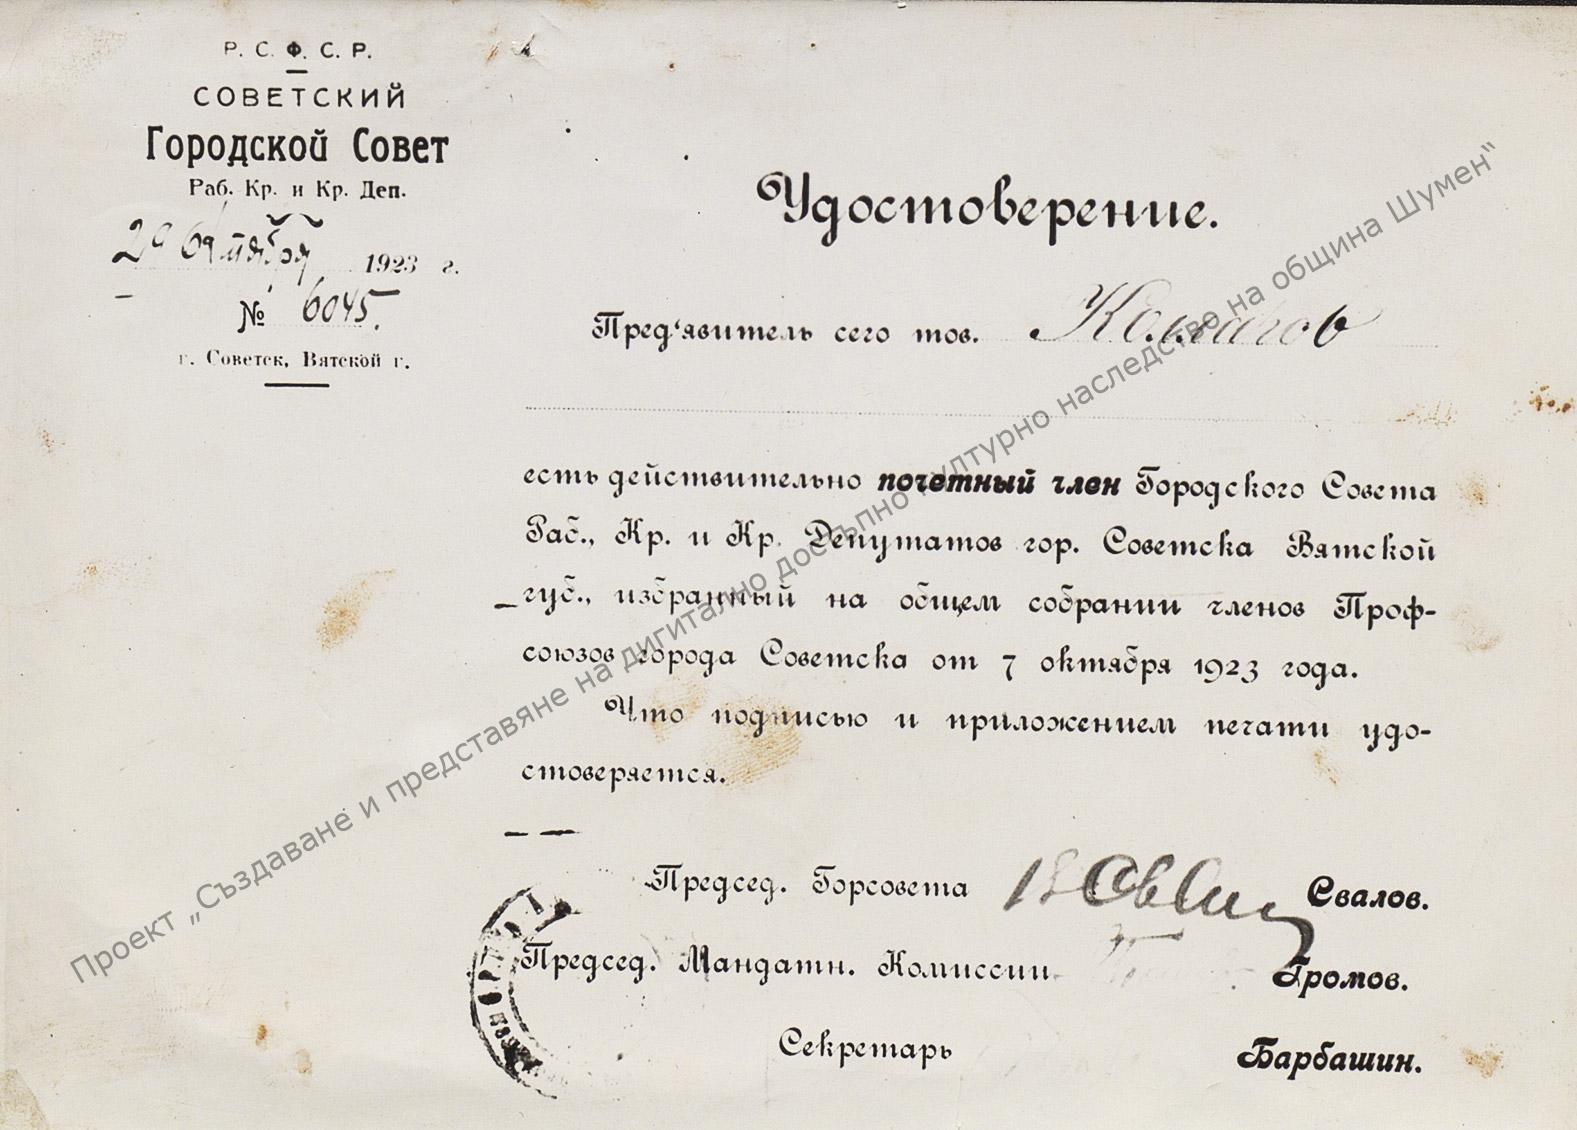 Р. С. Ф. С. Р.
СОВЕТСКИЙ
Городской Совет
Раб. Кр. и Кр. Деп.
октября 1923 г.
№ 6045.
г. Советск, Вятской г.
Удостоверение.
Пред'явитель сего тов. Коларов
есть действительно почетный член Городского Совета
Раб., Кр. и Кр. Депутатов гор. Советска Вятской
губ., избранный на общем собрании членов Проф-
союзов города Советска от 7 октября 1923 года.
Что подписью и приложением печати удо-
стоверяется.
Председ. Горсовета Свалов.
Председ. Мандатн. Комиссии Громов.
Секретарь Барбашин.
Проект „Създаване и представяне на дигитално достъпно културно наследство на община Шумен“